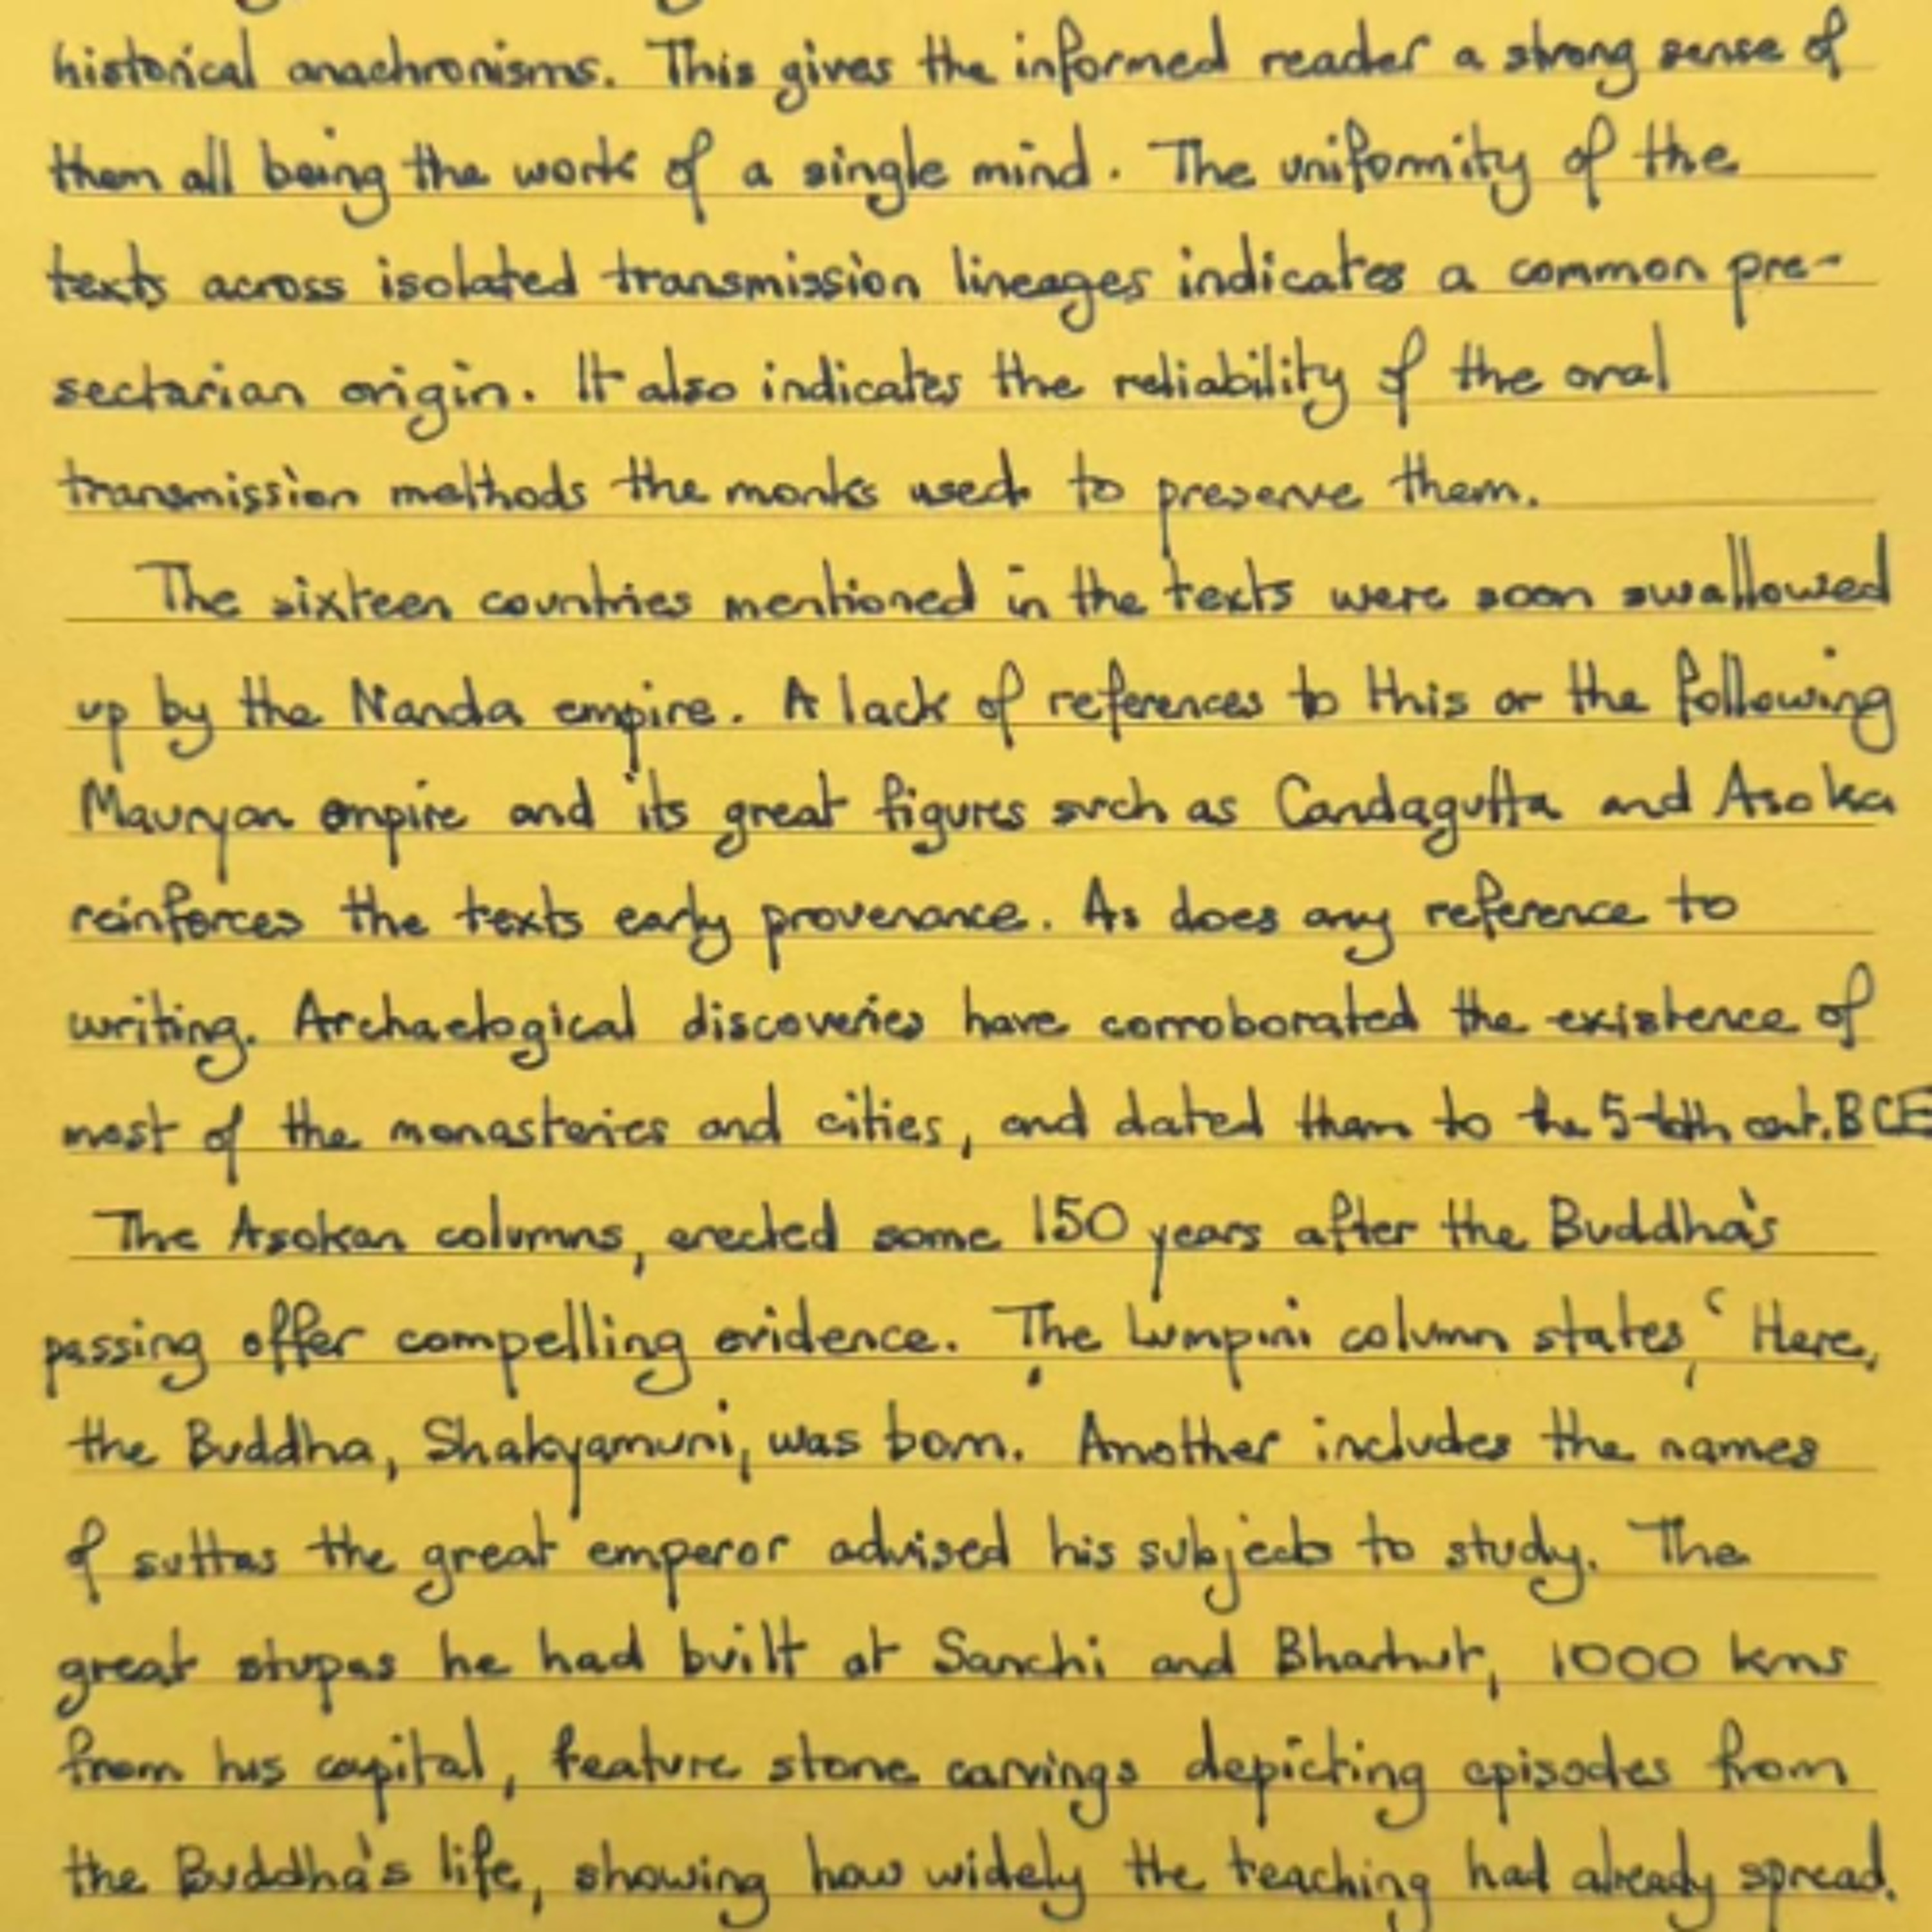 historical anachronisms. This gives the informed reader a strong sense of
them all being the work of a single mind. The uniformity of the
texts across isolated transmission lineages indicates a common pre-
sectarian origin. It also indicates the reliability of the oral
transmission methods the monks used to preserve them.
The sixteen countries mentioned in the texts were soon swallowed
up by the Nanda empire. A lack of references to this or the following
Mauryan empire and its great figures such as Candagutta and Asoka
reinforces the texts early provenance. As does any reference to
writing. Archaelogical discoveries have corroborated the existence of
most of the monasteries and cities, and dated them to the 5- cent. BCE
The Asokan columns, erected some 150 years after the Buddha's
passing offer compelling evidence. The Lumpini column states, ‘Here,
the Buddha, Shakyamuni, was born. Another includes the names
of suttas the great emperor advised his subjects to study. The
great stupas he had built at Sanchi and Bharhut, 1000 kms
from his capital, feature stone carvings depicting episodes from
the Buddha's life, showing how widely the teaching had already spread.